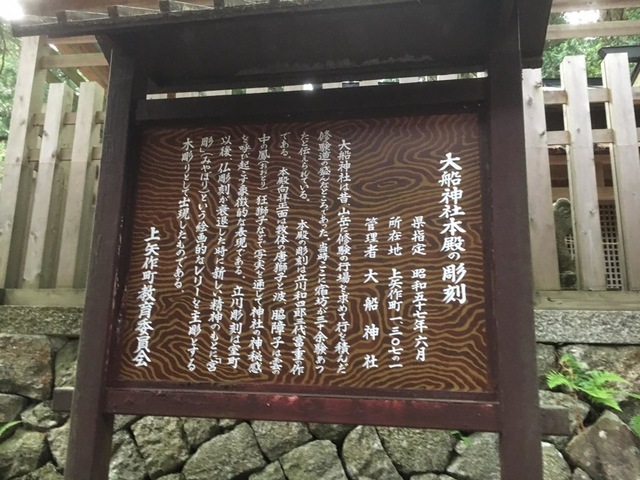 大船神社本殿の彫刻
県指定 昭和五十七年六月
所在地 上矢作町一二〇七ー二
管理者 大船神社
大船神社は昔、山岳に修験の行場を求めて行を積んだ
修験道の盛んなところであった。当時ここに宿坊が三十余軒もつ
たと伝えられている。 本殿の彫刻は立川和四郎三代富重作
である。本殿向拝正面は板体に唐獅子と波、脇障子は雲
中の鳳 狂獅子など、写実を通して神社の神秘感
を呼び起こす象徴的な表現である。立川彫刻は室町
以様、仏彫刻が衰退した時、新しい精神のもとに「宮
彫」(みやぼり)という絵画的なレリーフを主彫とする
木彫りとして出現したものである。
上矢作町教育委員会